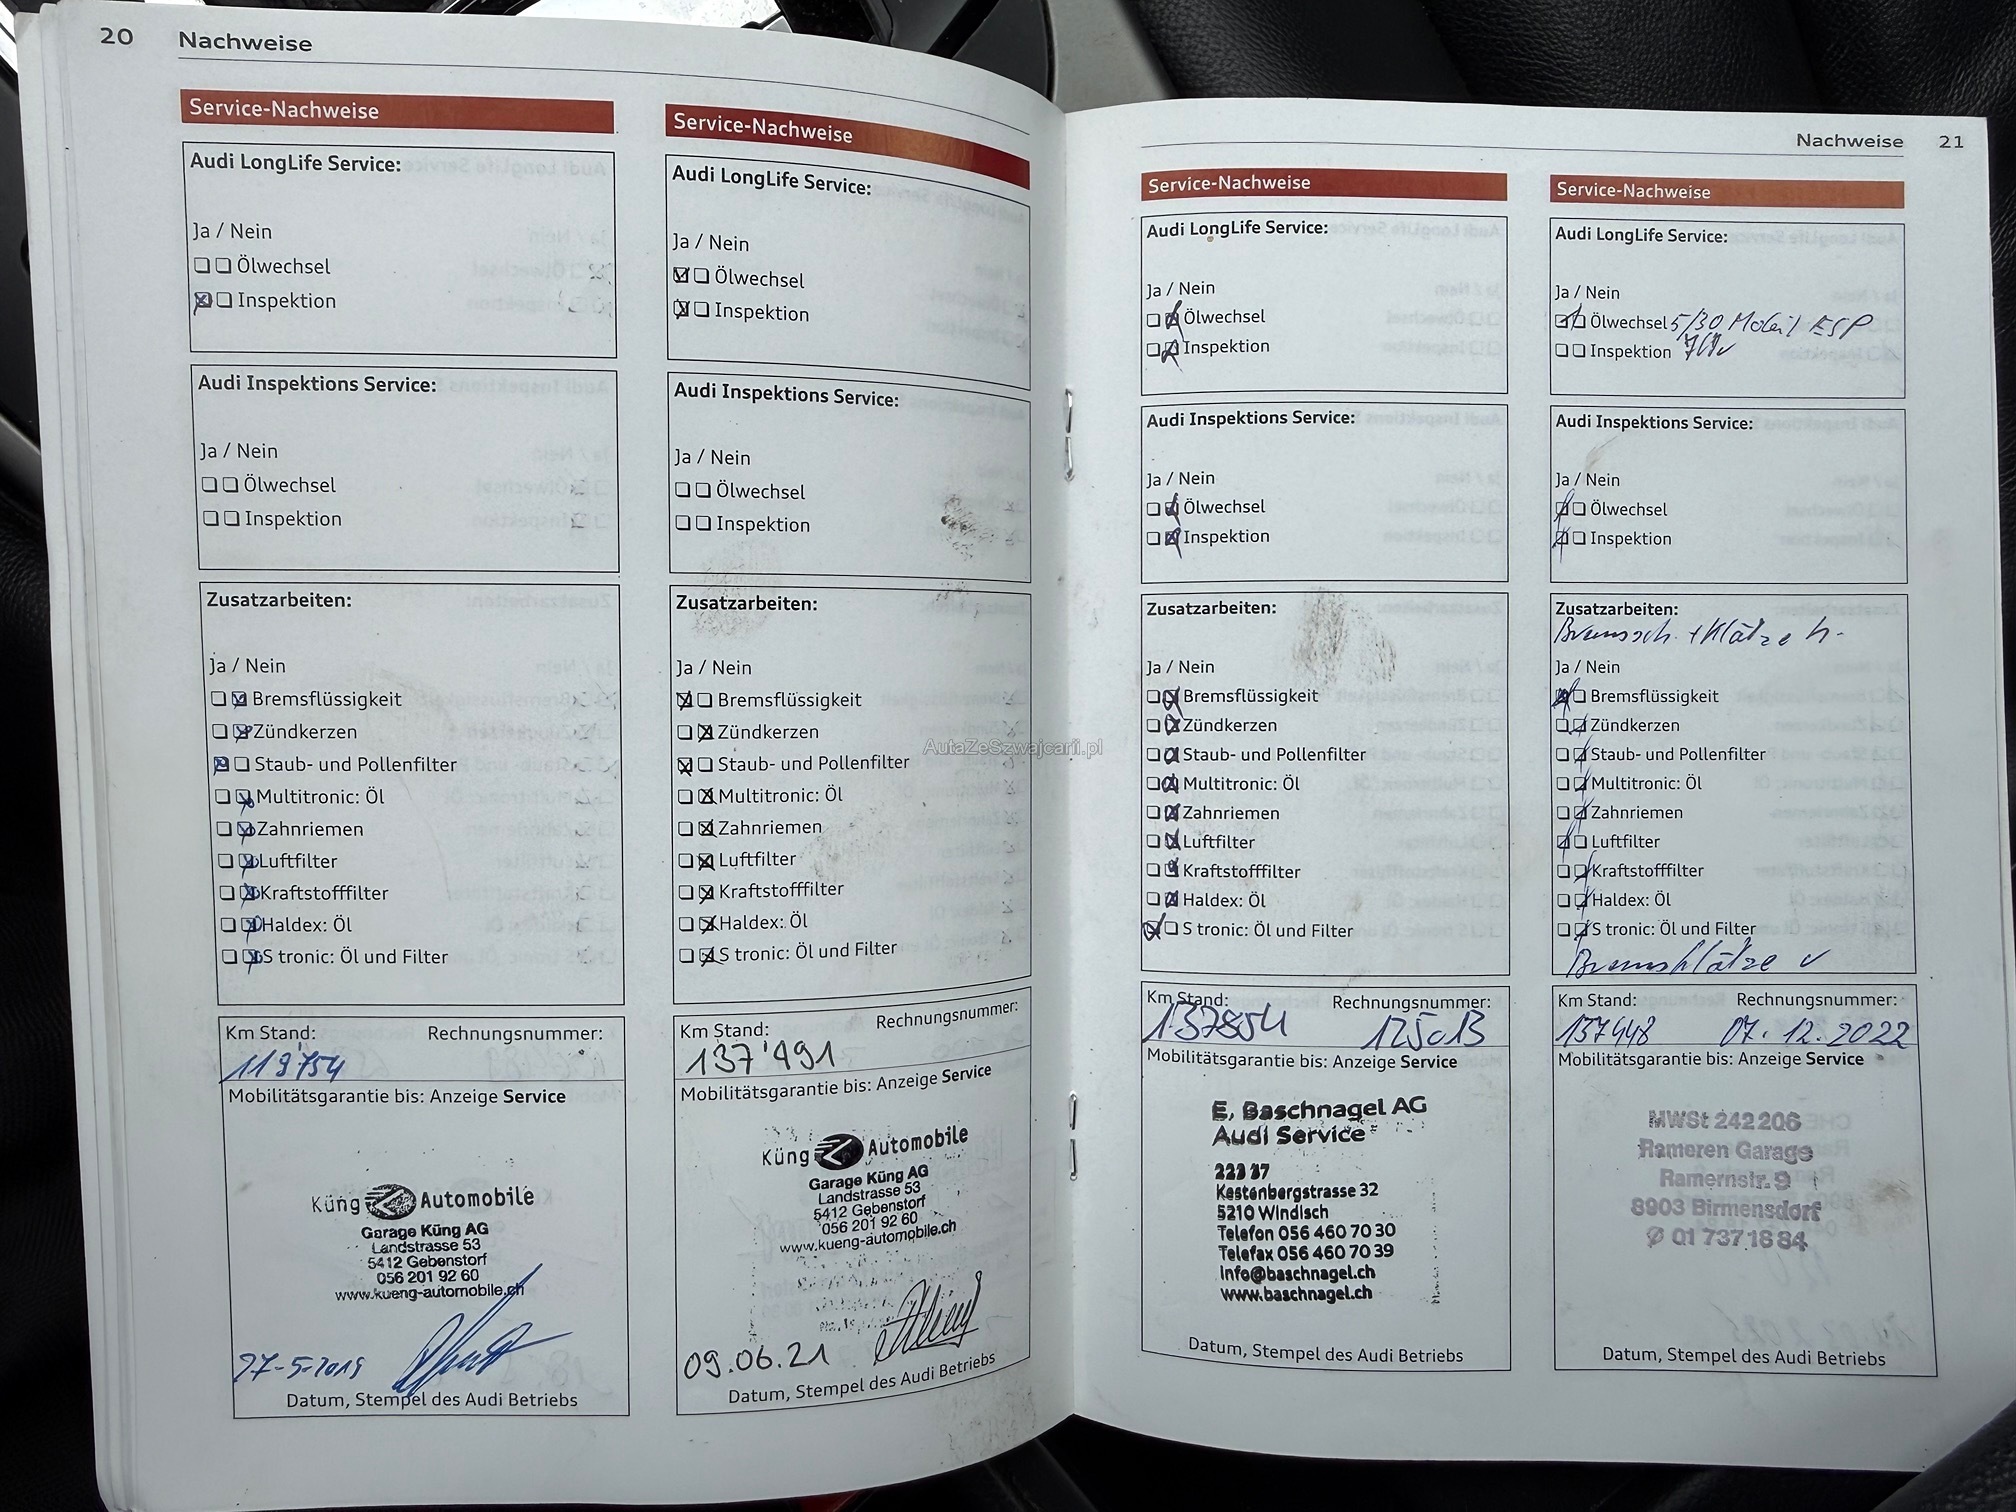 20 Nachweise
Service-Nachweise
Audi LongLife Service:
Ja / Nein
Ölwechsel
Inspektion
Audi Inspektions Service:
Ja / Nein
Ölwechsel
Inspektion
Zusatzarbeiten:
Ja / Nein
Bremsflüssigkeit
Zündkerzen
Staub- und Pollenfilter
Multitronic: Öl
Zahnriemen
Luftfilter
Kraftstofffilter
Haldex: Öl
S tronic: Öl und Filter
Km Stand: Rechnungsnummer:
119'754
Mobilitätsgarantie bis: Anzeige Service
Küng Automobile
Garage Küng AG
Landstrasse 53
5412 Gebenstorf
056 201 92 60
www.kueng-automobile.ch
27-5-2019
Datum, Stempel des Audi Betriebs
Service-Nachweise
Audi LongLife Service:
Ja / Nein
Ölwechsel
Inspektion
Audi Inspektions Service:
Ja / Nein
Ölwechsel
Inspektion
Zusatzarbeiten:
Ja / Nein
Bremsflüssigkeit
Zündkerzen
Staub- und Pollenfilter
Multitronic: Öl
Zahnriemen
Luftfilter
Kraftstofffilter
Haldex: Öl
S tronic: Öl und Filter
Km Stand: Rechnungsnummer:
137'491
Mobilitätsgarantie bis: Anzeige Service
Küng Automobile
Garage Küng AG
Landstrasse 53
5412 Gebenstorf
056 201 92 60
www.kueng-automobile.ch
09.06.21
Datum, Stempel des Audi Betriebs
AutaZeSzwajcarii.pl
Nachweise 21
Service-Nachweise
Audi LongLife Service:
Ja / Nein
Ölwechsel
Inspektion
Audi Inspektions Service:
Ja / Nein
Ölwechsel
Inspektion
Zusatzarbeiten:
Ja / Nein
Bremsflüssigkeit
Zündkerzen
Staub- und Pollenfilter
Multitronic: Öl
Zahnriemen
Luftfilter
Kraftstofffilter
Haldex: Öl
S tronic: Öl und Filter
Km Stand: Rechnungsnummer:
137854 125013
Mobilitätsgarantie bis: Anzeige Service
E. Baschnagel AG
Audi Service
Kestenbergstrasse 32
5210 Windisch
Telefon 056 460 70 30
Telefax 056 460 70 39
Info@baschnagel.ch
www.baschnagel.ch
Datum, Stempel des Audi Betriebs
Service-Nachweise
Audi LongLife Service:
Ja / Nein
Ölwechsel 5/30 Mobil ESP
Inspektion
Audi Inspektions Service:
Ja / Nein
Ölwechsel
Inspektion
Zusatzarbeiten:
Bremssch. + Klätze h.
Ja / Nein
Bremsflüssigkeit
Zündkerzen
Staub- und Pollenfilter
Multitronic: Öl
Zahnriemen
Luftfilter
Kraftstofffilter
Haldex: Öl
S tronic: Öl und Filter
Bremsklätze v
Km Stand: Rechnungsnummer:
157448 07.12.2022
Mobilitätsgarantie bis: Anzeige Service
MWSt 242 206
Rameren Garage
Ramernstr. 9
8903 Birmensdorf
01 737 16 84
Datum, Stempel des Audi Betriebs